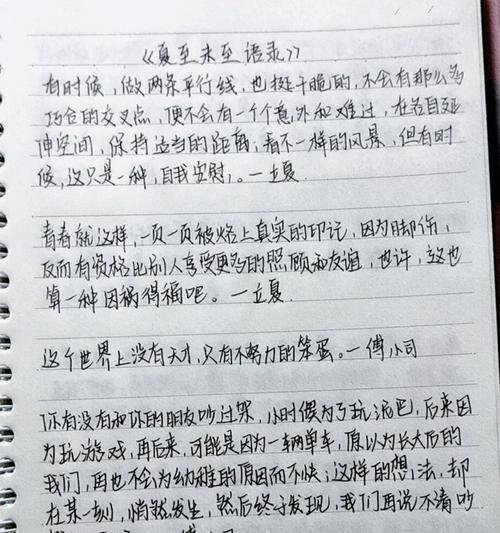 《夏至未至 语录》
有时候，做两条平行线，也挺干脆的，不会有那么多
巧合的交叉点，便不会有一个个意外和难过，在各自延
伸空间，保持适当的距离；看不一样的风景，但有时
候，这只是一种，自我安慰，。一立夏
青春就这样，一页一页被烙上真实的印记，因为脚伤，
反而有资格比别人享受更多的照顾和友谊，也许，这也
算一种因祸得福吧。一立夏
这个世界上没有天才，只有不努力的笨蛋。一傅小司
你有没有和你的朋友吵过架，小时候为了玩泥巴，后来因
为玩游戏，再后来，可能是因为一辆单车，原以为长大后的
我们，再也不会为幼稚的原因而不快；这样的想法，却
在某一刻，悄然发生，然后终于发现，我们再说不清吵